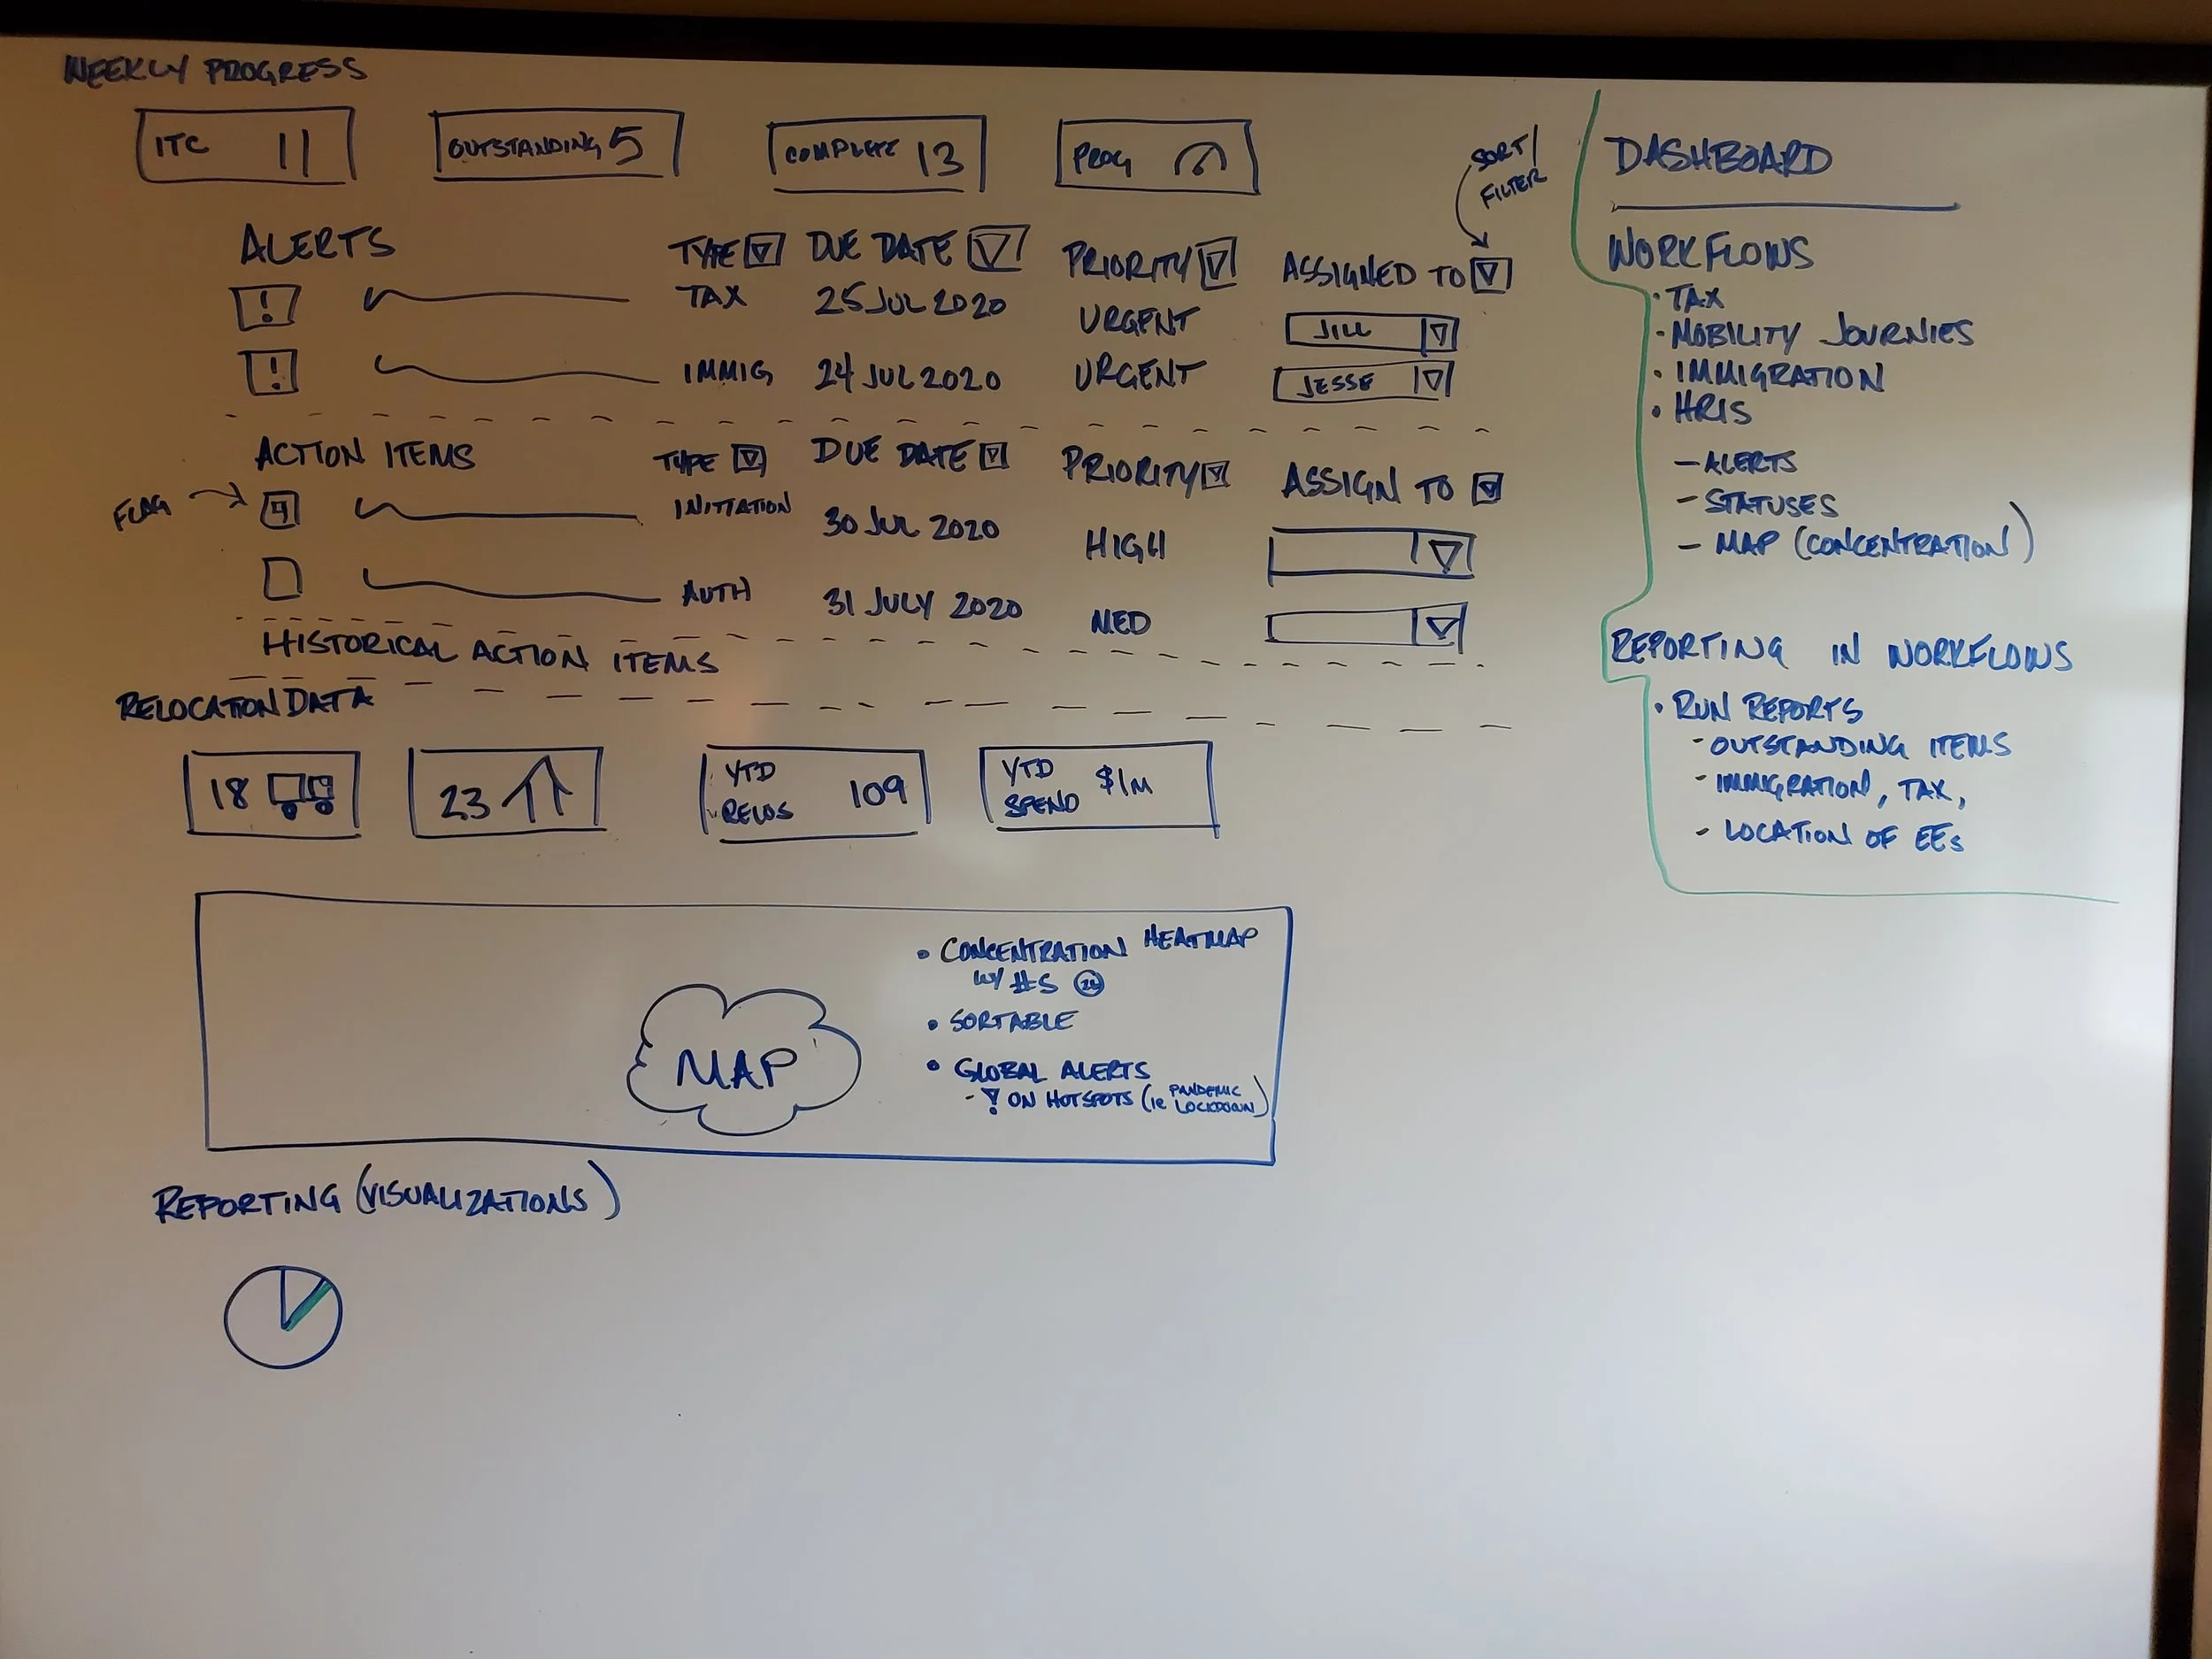 WEEKLY PROGRESS
ITC 11
OUTSTANDING 5
COMPLETE 13
PROG
SORT/
FILTER
ALERTS TYPE DUE DATE PRIORITY ASSIGNED TO
! TAX 25 JUL 2020 URGENT JILL
! IMMIG 24 JUL 2020 URGENT JESSE
ACTION ITEMS TYPE DUE DATE PRIORITY ASSIGN TO
FLAG INITIATION 30 JUL 2020 HIGH
AUTH 31 JULY 2020 MED
HISTORICAL ACTION ITEMS
RELOCATION DATA
18
23
YTD
RELOS 109
YTD
SPEND $1M
MAP
• CONCENTRATION HEATMAP
W/ #S
• SORTABLE
• GLOBAL ALERTS
- ! ON HOTSPOTS (ie PANDEMIC
LOCKDOWN)
REPORTING (VISUALIZATIONS)
DASHBOARD
WORKFLOWS
• TAX
• MOBILITY JOURNIES
• IMMIGRATION
• HRIS
- ALERTS
- STATUSES
- MAP (CONCENTRATION)
REPORTING IN WORKFLOWS
• RUN REPORTS
- OUTSTANDING ITEMS
- IMMIGRATION, TAX,
- LOCATION OF EEs